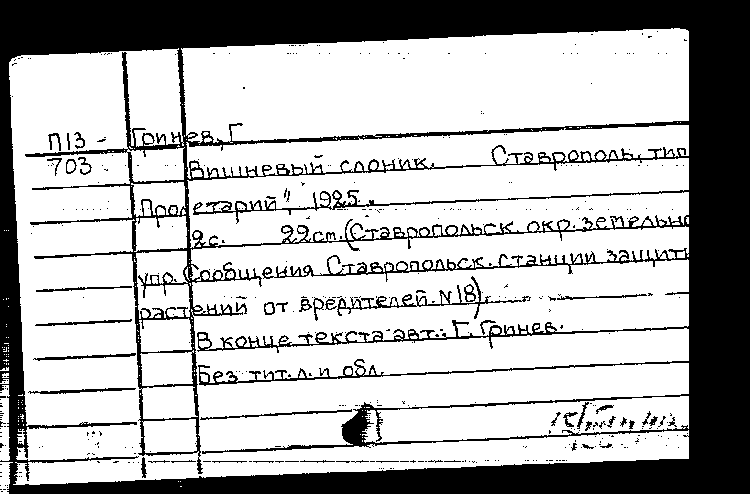 П13- Гринев, Г
703 Вишневый слоник. Ставрополь, тип
„Пролетарий", 1925.
2с. 22см. (Ставропольск. окр. земельно
упр. Сообщения Ставропольск. станции защиты
растений от вредителей. №18).
В конце текста авт.: Г. Гринев.
Без тит. л. и обл.